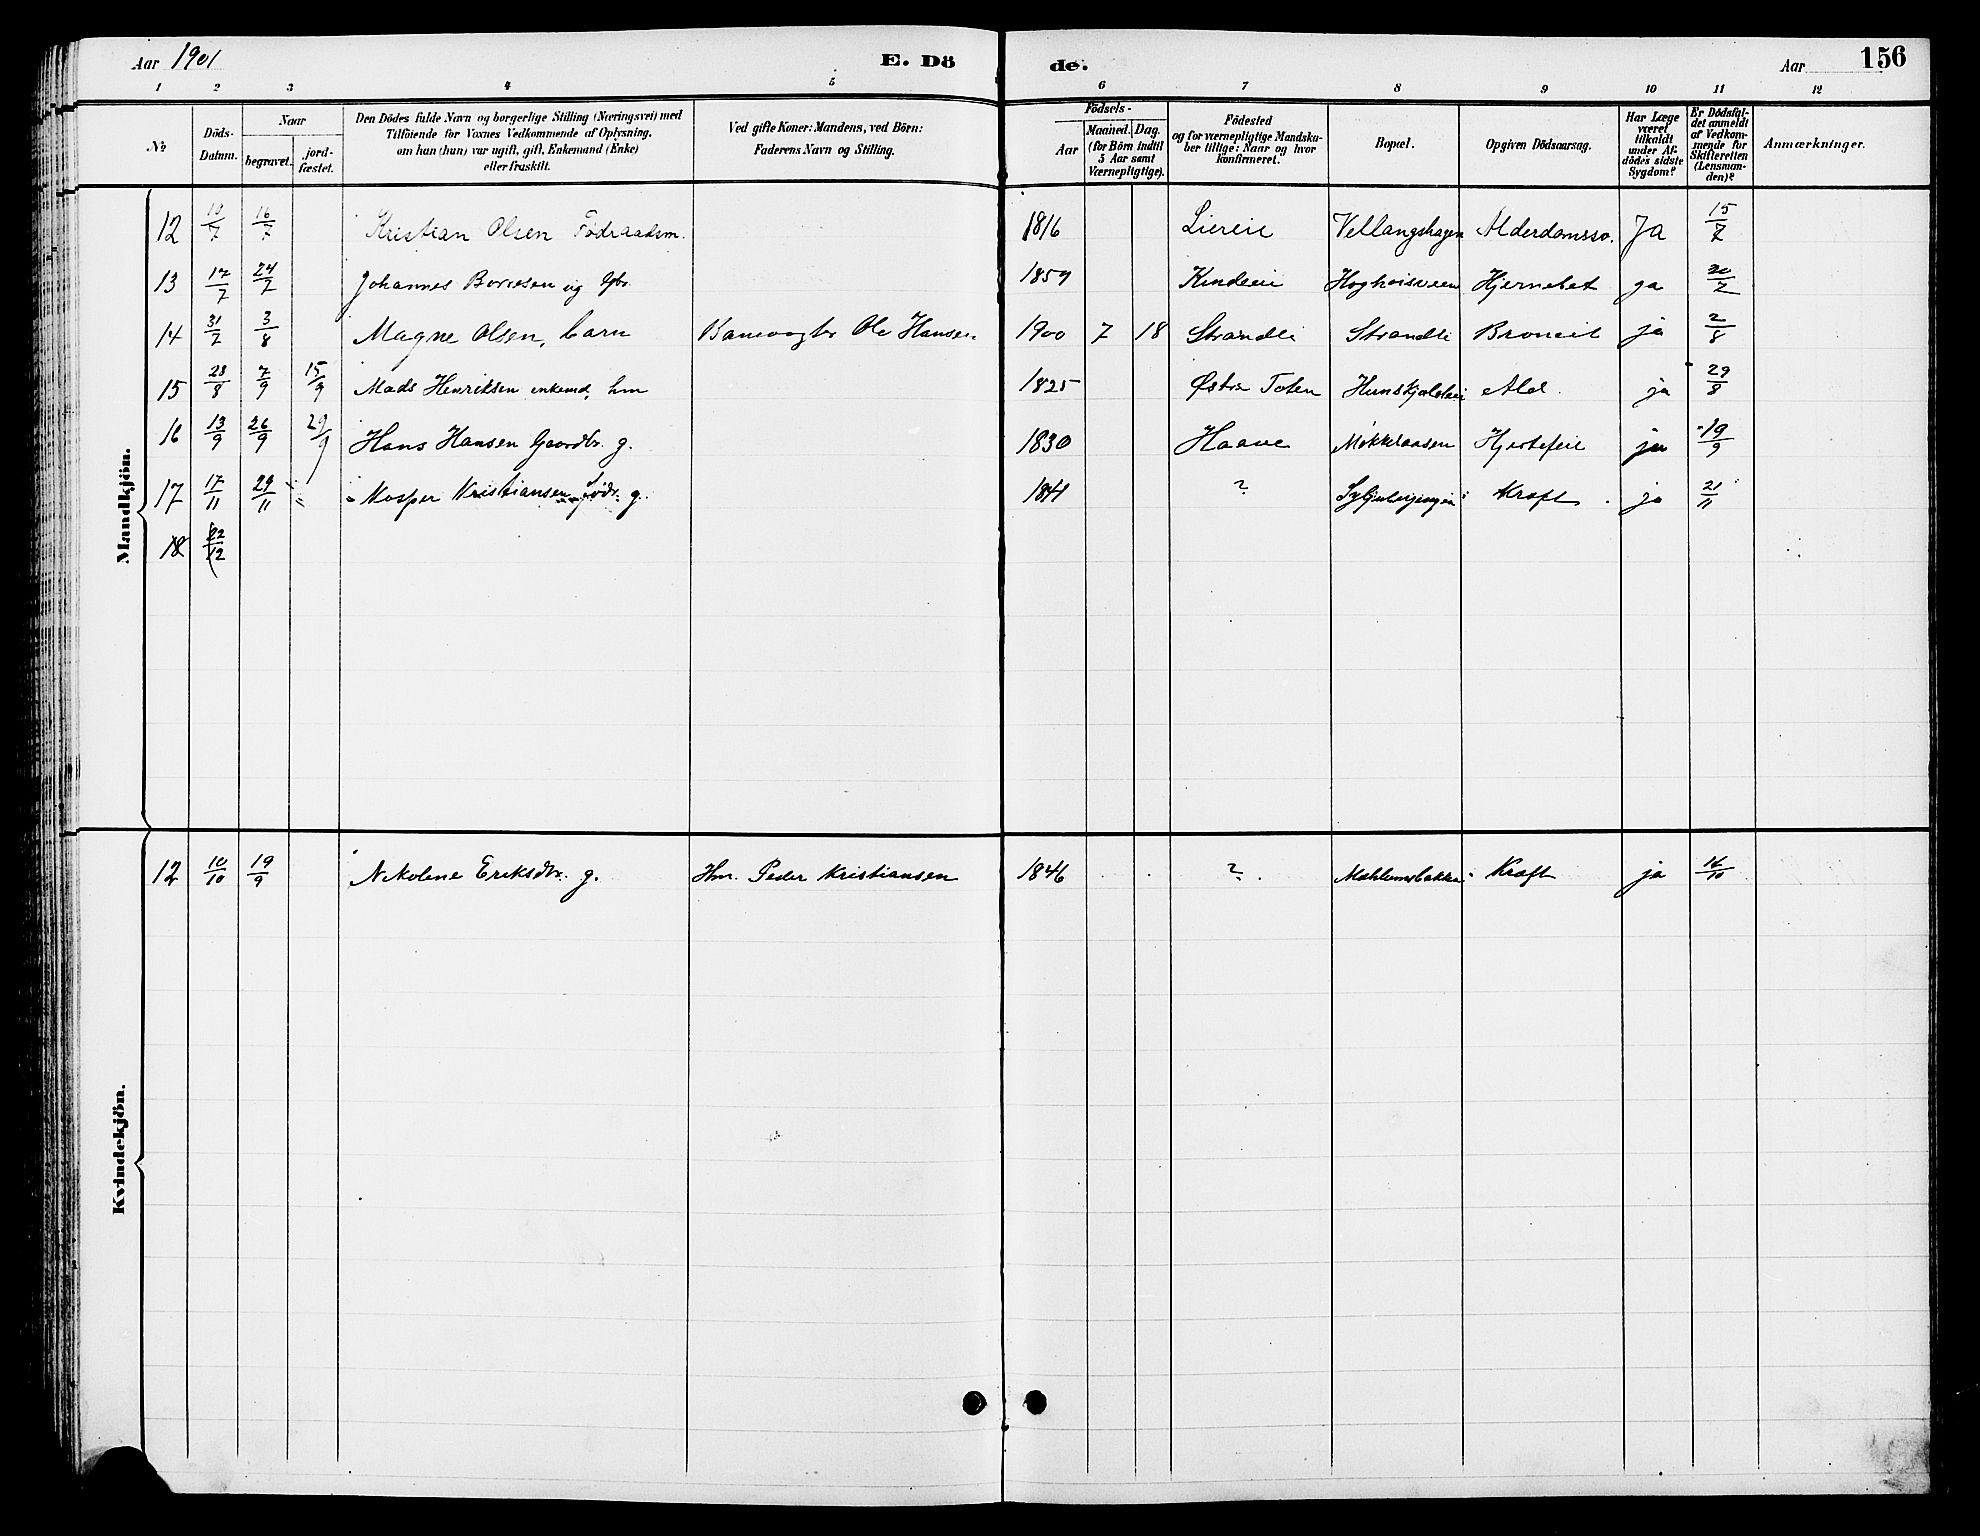 Aar 1901 E. Dö de. Aar 156
1 2 3 4 5 6 7 8 9 10 11 12
No Döds-Datum. Naar begravet. jord-fæstet. Den Dödes fulde Navn og borgerlige Stilling (Næringsvei) med Tilföiende for Voxnes Vedkommende af Oplysning, om han (hun) var ugift, gift, Enkemand (Enke) eller fraskilt. Ved gifte Koner: Mandens, ved Börn: Faderens Navn og Stilling. Födsels- Aar Maaned. Dag. (for Börn indtil 5 Aar samt Værnepligtige). Födested og for værnepligtige Mandskaber tillige: Naar og hvor konfirmeret. Bopæl. Opgiven Dödsaarsag. Har Læge været tilkaldt under Afdödes sidste Sygdom? Er Dödsfaldet anmeldt af Vedkommende for Skifteretten (Lensmanden)? Anmærkninger.
Mandkjön.
12 10/7 16/7 Kristian Olsen Föderaadsm. 1816 Liereie Vellangshagen Alderdomssv. Ja 15/7
13 17/7 24/7 Johannes Borresen ug 1859 Kindeie Hjernebet ja 20/7
14 31/7 3/8 Magne Olsen, barn Banevogter Ole Hansen 1900 7 18 Strandli Strandli Broncit ja 2/8
15 28/8 7/9 15/9 Mads Henriksen enkemd, hm 1825 Østre Toten Ald. ja 29/8
16 13/9 26/9 29/9 Hans Hansen Gaardbr. g. 1830 Haave Møkkelaasen Hjertefeil ja 19/9
17 17/11 29/11 Kristiansen g. 1841 ? Kræft ja 21/11
18 22/12
Kvindekjön.
12 10/10 19/9 Nikolene Eriksdtr. g. Hm. Peder Kristiansen 1846 ? Mæhlumsbakken Kræft ja 14/10